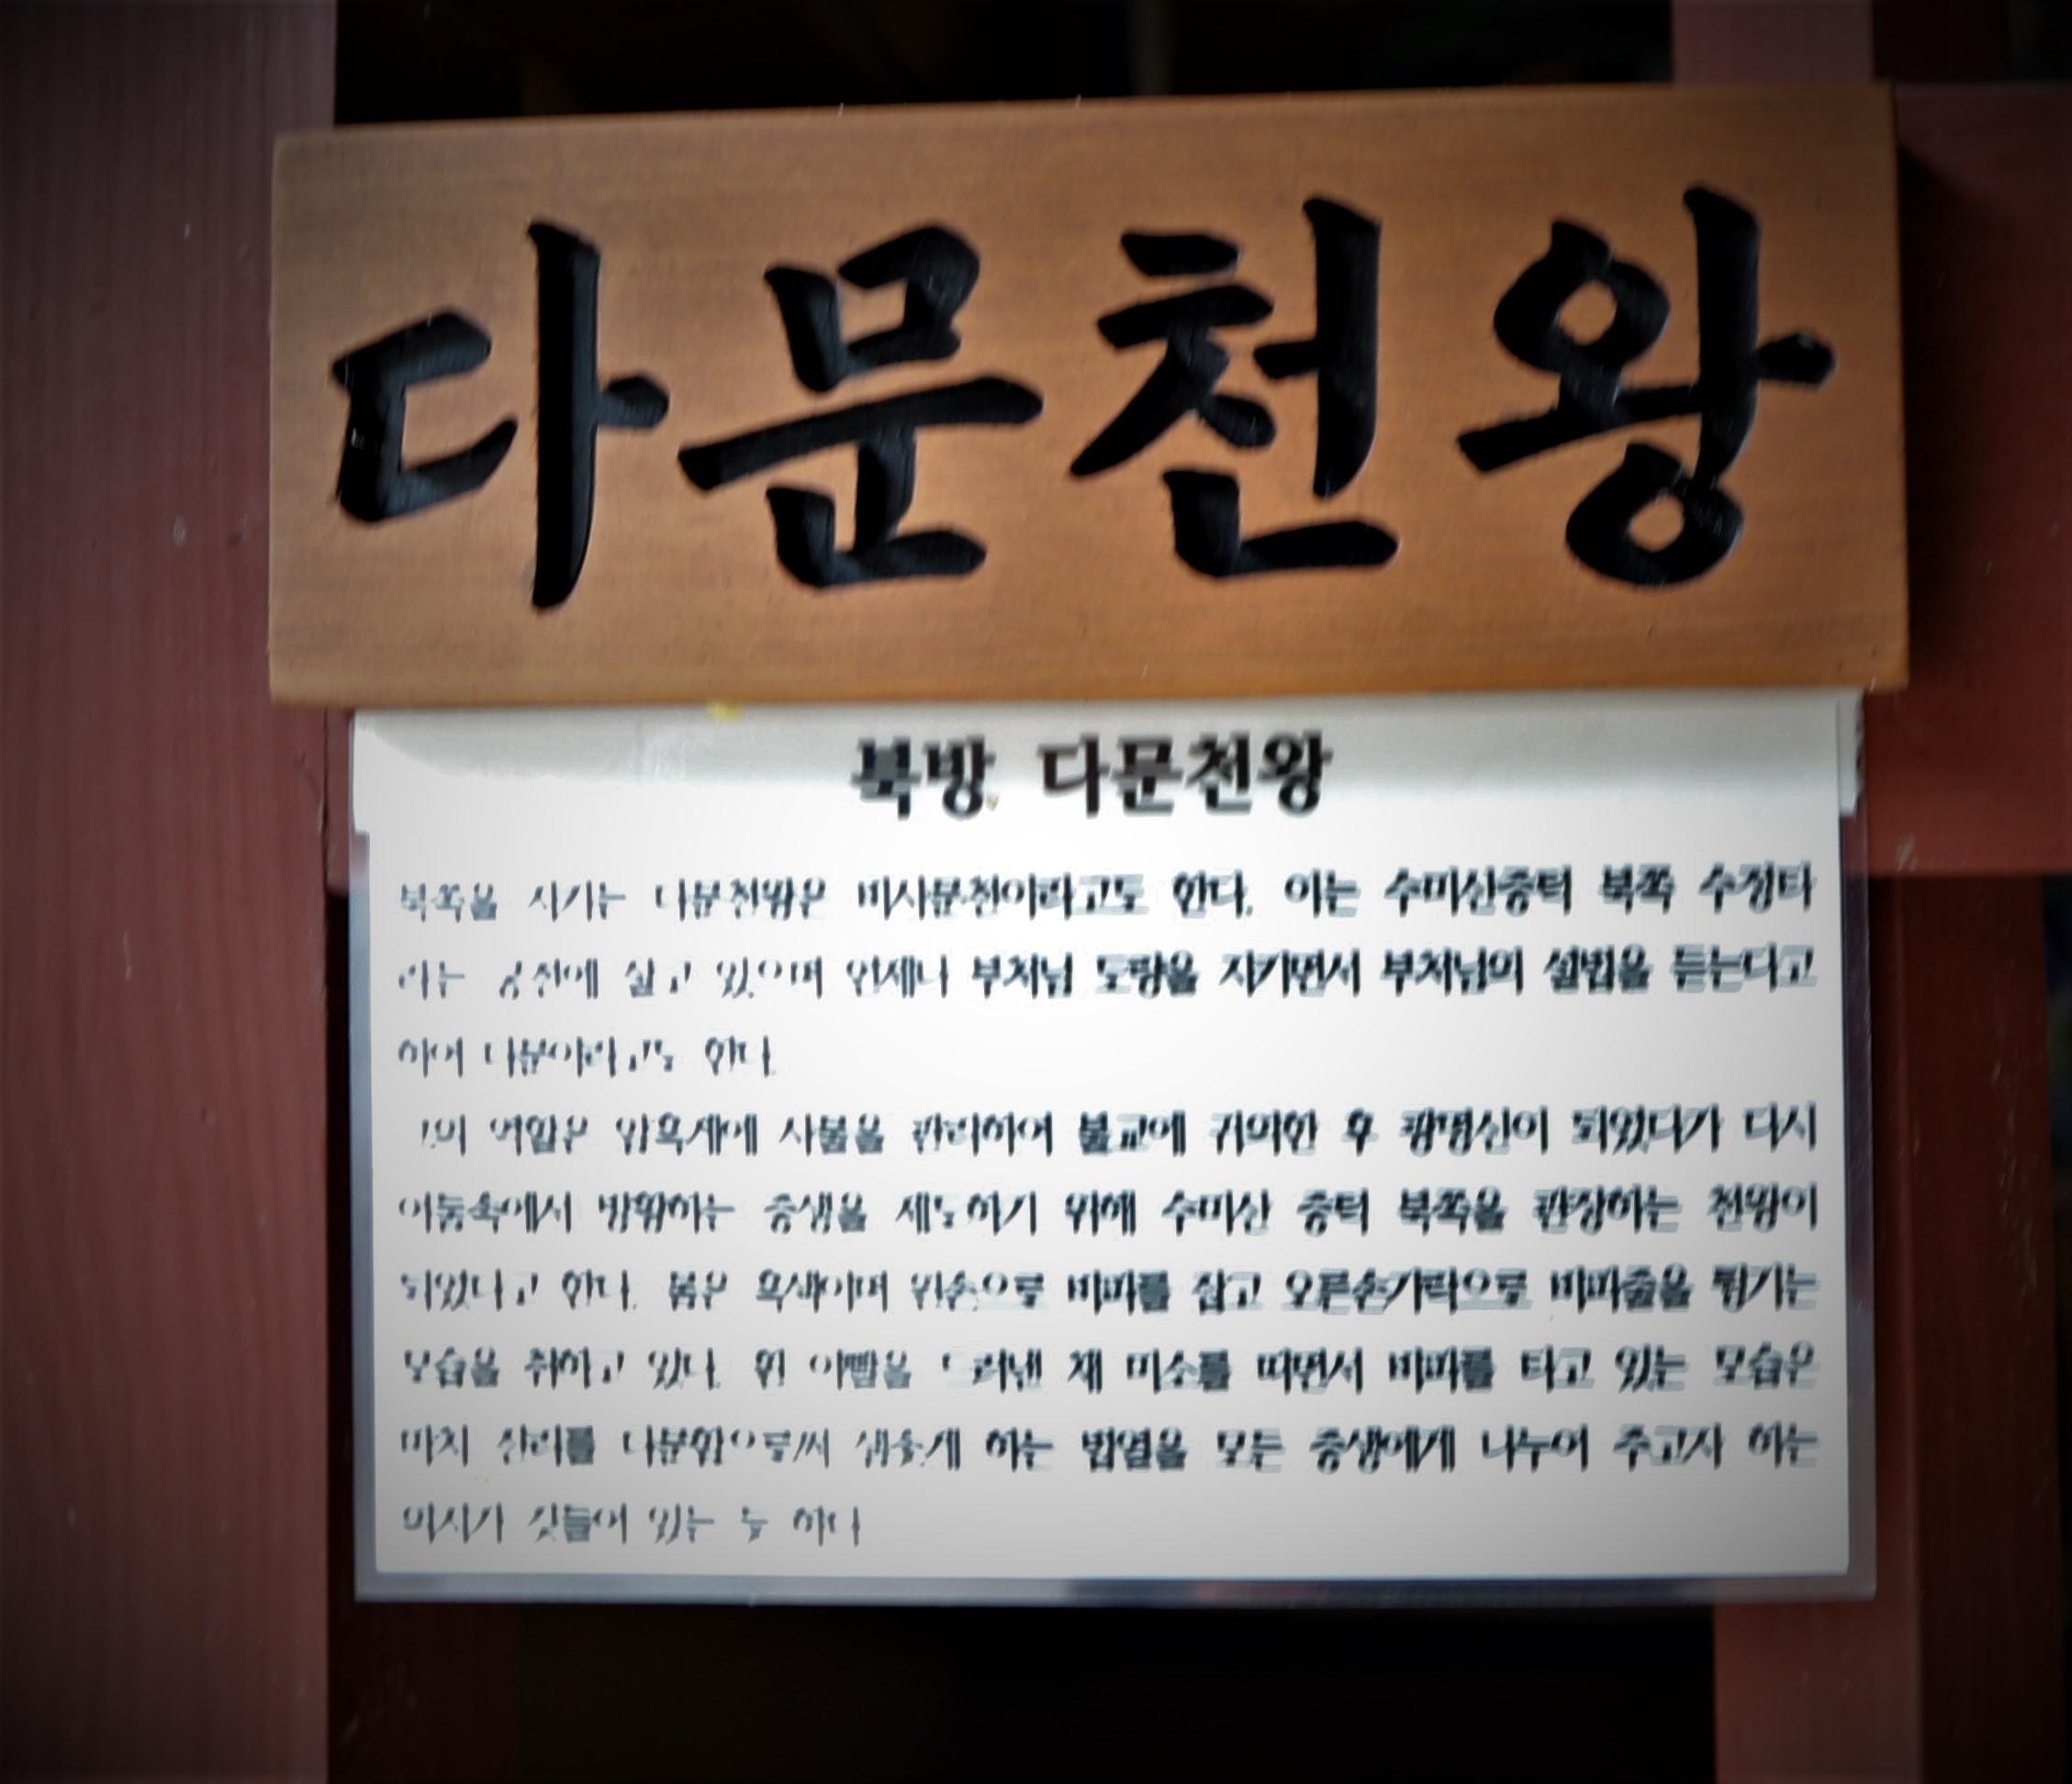 다문천왕
북방 다문천왕
북쪽을 지키는 다문천왕은 비사문천이라고도 한다. 이는 수미산중턱 북쪽 수정타
라는 궁전에 살고 있으며 언제나 부처님 도량을 지키면서 부처님의 설법을 듣는다고
하여 다문이라고도 한다
그의 역할은 암흑세계 사물을 관리하여 불교에 귀의한 후 광명신이 되었다가 다시
어둠속에서 방황하는 중생을 제도하기 위해 수미산 중턱 북쪽을 관장하는 천왕이
되었다고 한다. 몸은 흑색이며 왼손으로 비파를 잡고 오른손가락으로 비파줄을 튕기는
모습을 취하고 있다. 흰 이빨을 드러낸 채 미소를 띠면서 비파를 타고 있는 모습은
마치 진리를 다문함으로써 샘솟게 하는 법열을 모든 중생에게 나누어 주고자 하는
의지가 깃들어 있는 듯 하다